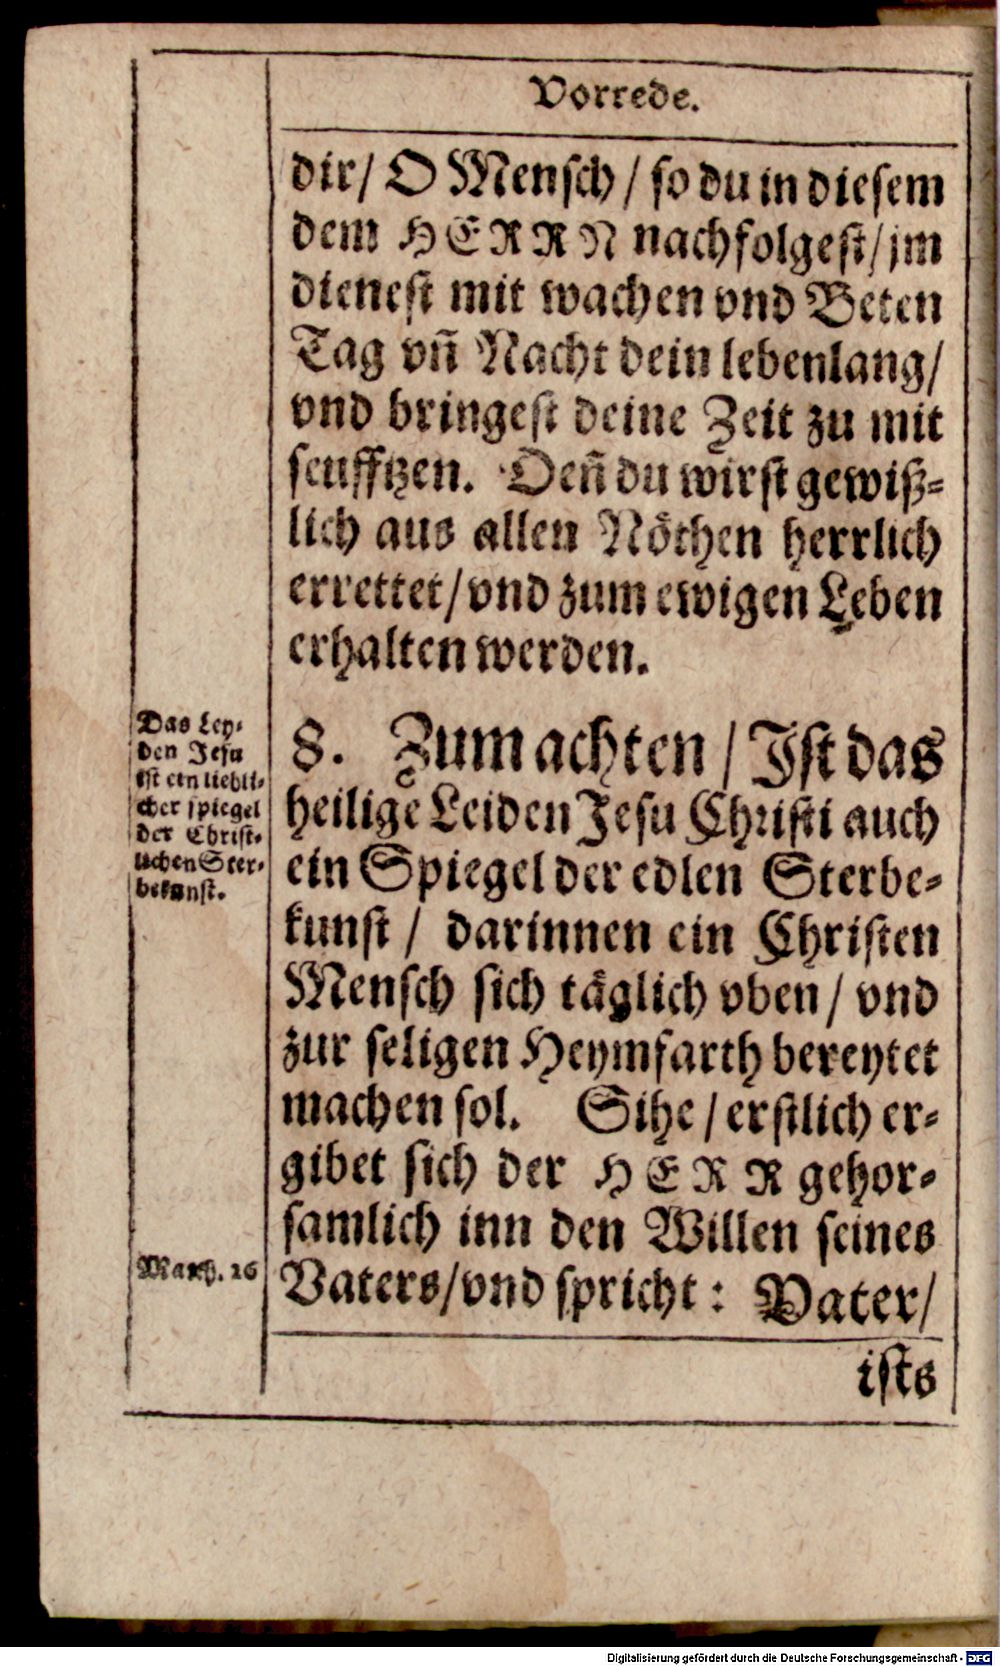 Vorrede.
dir/ O Mensch/ so du in diesem
dem HERRN nachfolgest/ jm
dienest mit wachen vnd Beten
Tag vñ Nacht dein lebenlang/
vnd bringest deine Zeit zu mit
seufftzen. Deñ du wirst gewiß-
lich aus allen Nöthen herrlich
errettet/ vnd zum ewigen Leben
erhalten werden.
Das Ley-
den Jesu
ist ein liebli-
cher spiegel
der Christ-
lichen Ster-
bekunst.
8. Zum achten/ Ist das
heilige Leiden Jesu Christi auch
ein Spiegel der edlen Sterbe-
kunst/ darinnen ein Christen
Mensch sich täglich vben/ vnd
zur seligen Heymfarth bereytet
machen sol. Sihe/ erstlich er-
gibet sich der HERR gehor-
samlich inn den Willen seines
Matth. 26
Vaters/ vnd spricht: Vater/
ists
Digitalisierung gefördert durch die Deutsche Forschungsgemeinschaft - DFG